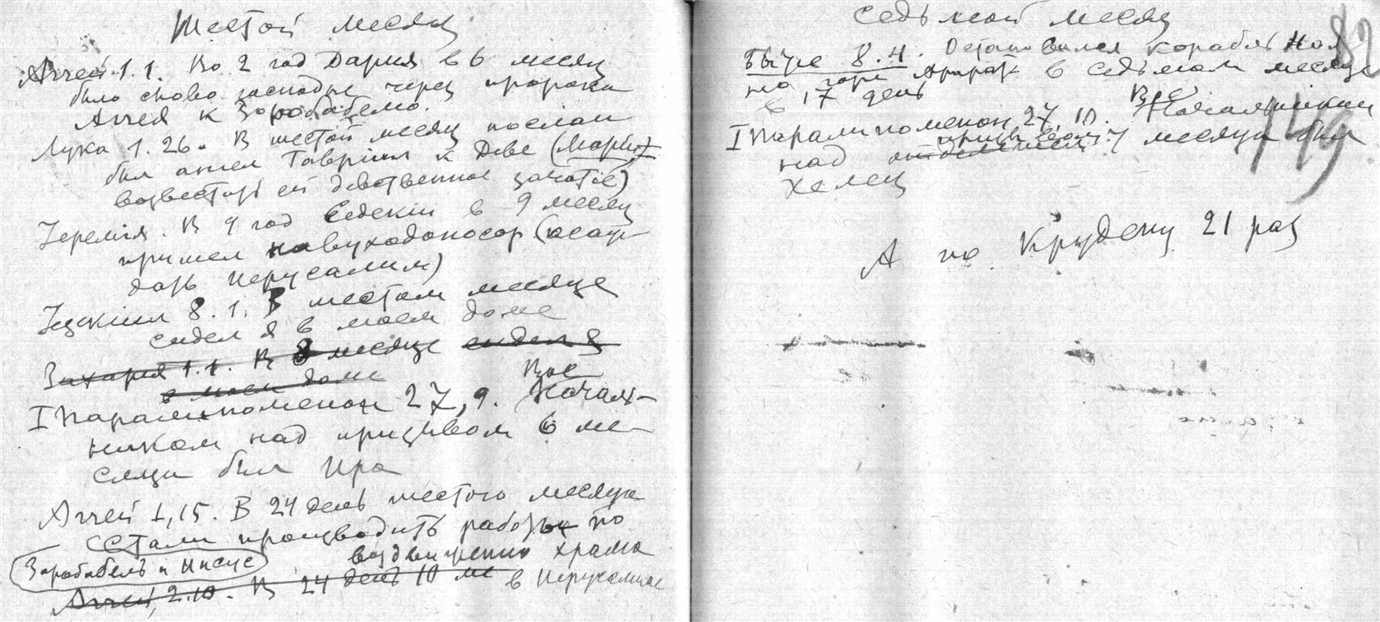 Шестой месяц
Аггей 1.1. Во 2 год Дария в 6 месяц
было слово господне через пророка
Аггея к Зоробабелю.
Лука 1.26. В шестой месяц послан
был ангел Гавриил к Деве (Марии
возвестить ей девственное зачатие)
Іеремія. В 9 год Седекіи в 9 месяц
пришел Навуходоносор (осаж-
дать Иерусалим)
Іезекіил 8.1. В шестом месяце
сидел я в моем доме
Захария 1.1. В 8 месяце сидел я
в моем доме
I Паралипоменон 27,9. Вое
Началь-
ником над призывом 6 ме-
сяца был Ира
Аггей 1,15. В 24 день шестого месяца
стали производить работы по
Заробабель и Иисус возвдвижению храма
Аггей, 2.10. В 24 день 10 ме в Иерусалиме
седьмой месяц
82
Бытие 8.4. Остановился корабль Ноя
на горе Арарат в седьмом месяце
в 17 день
149
I Паралипоменон 27,10. Вое Начальником
над призывом 7 месяца был
Хелец
А по Крудену 21 раз